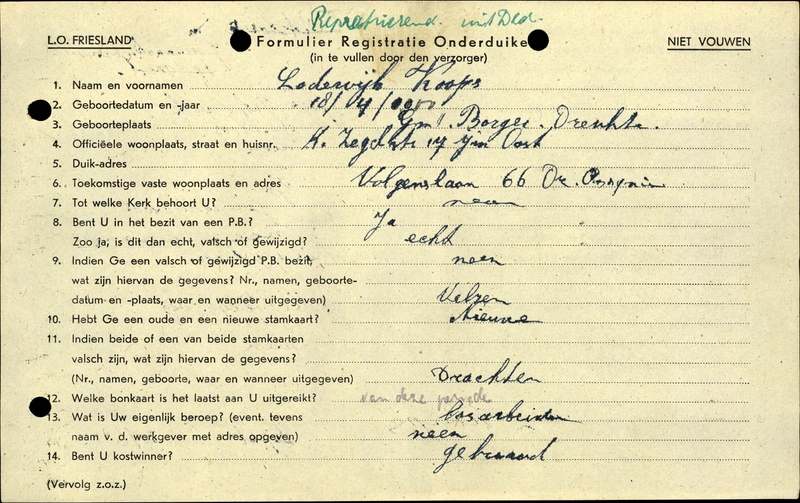 Repatrieerend. uit Dld.
L.O. FRIESLAND
Formulier Registratie Onderduike
NIET VOUWEN
(in te vullen door den verzorger)
1. Naam en voornamen Lodewijk Koops
2. Geboortedatum en -jaar 18/4/
3. Geboorteplaats Gmt. Borger. Drenthe.
4. Officiëele woonplaats, straat en huisnr. 17 Oost
5. Duik-adres
6. Toekomstige vaste woonplaats en adres 66
7. Tot welke Kerk behoort U? neen
8. Bent U in het bezit van een P.B.? Ja
Zoo ja, is dit dan echt, valsch of gewijzigd? echt
9. Indien Ge een valsch of gewijzigd P.B. bezit, neen
wat zijn hiervan de gegevens? Nr., namen, geboorte-
datum en -plaats, waar en wanneer uitgegeven) Velzen
10. Hebt Ge een oude en een nieuwe stamkaart? Nieuwe
11. Indien beide of een van beide stamkaarten
valsch zijn, wat zijn hiervan de gegevens?
(Nr., namen, geboorte, waar en wanneer uitgegeven) Drachten
12. Welke bonkaart is het laatst aan U uitgereikt? van deze periode
13. Wat is Uw eigenlijk beroep? (event. tevens bosarbeider
naam v. d. werkgever met adres opgeven) neen
14. Bent U kostwinner? gehuwd
(Vervolg z.o.z.)